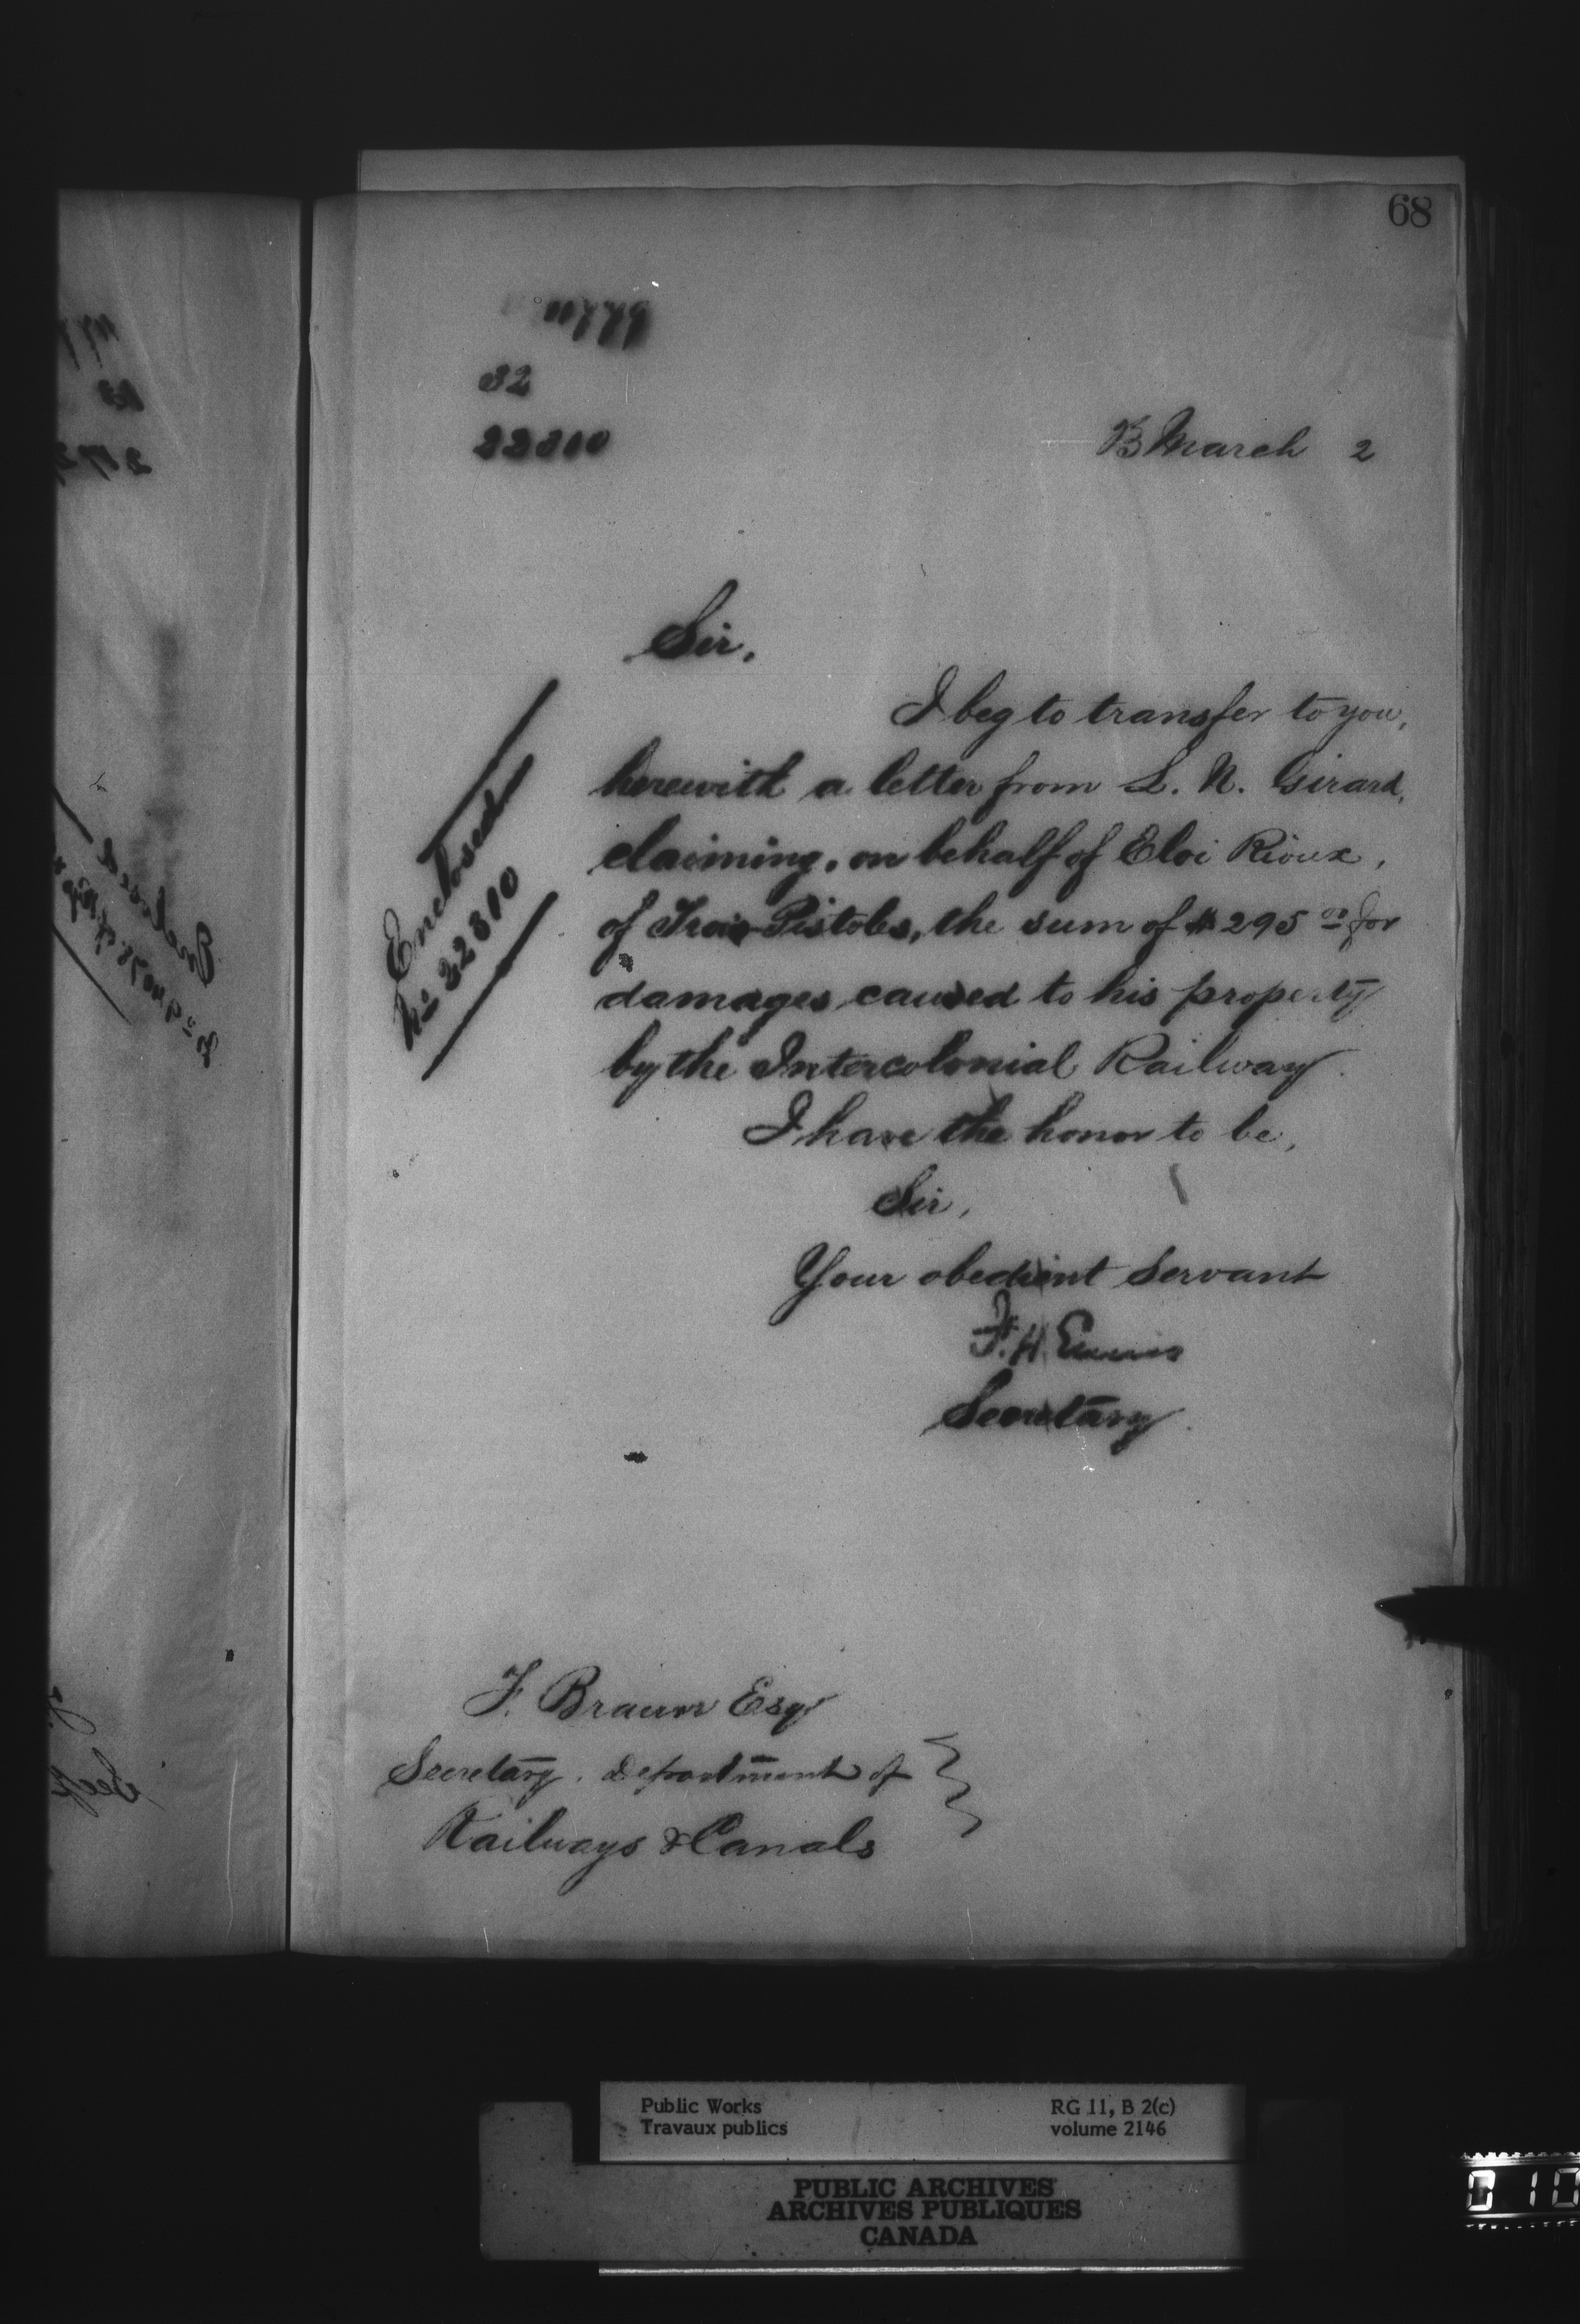 68
11779
32
22310
13 March 2
Sir,
I beg to transfer to you,
herewith a letter from L. N. Girard,
claiming, on behalf of Eloi Rioux,
of Trois-Pistoles, the sum of $295 00 for
damages caused to his property
by the Intercolonial Railway.
I have the honor to be,
Sir,
Your obedient servant
F. H. Ennis
Secretary.
Enclosed
No 22310
F. Braun Esqr
Secretary, Department of
Railways & Canals
Public Works
Travaux publics
RG 11, B 2(c)
volume 2146
PUBLIC ARCHIVES
ARCHIVES PUBLIQUES
CANADA
010